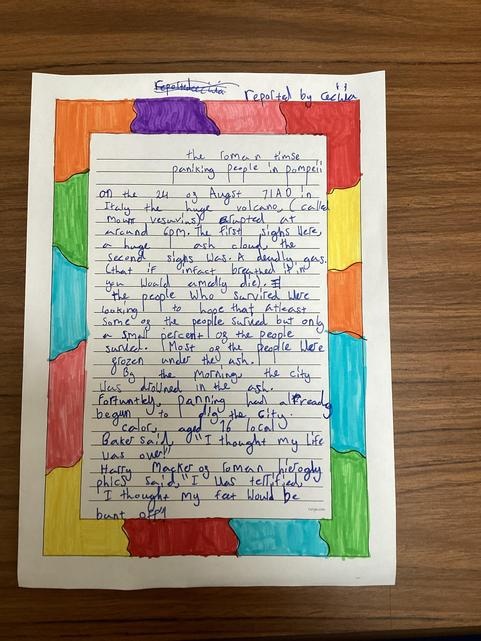 reported by cecilia
the roman timse
paniking people in pompeii
on the 24 og Augst 71AD in
Italy the huge volcano (called
mount vesuvius) erupted at
around 6pm. The first sighs Were,
a huge ash cloud, the
second sighs was. A deadly gas.
(that if infact breathed it in
you Would amedly die).
the people Who survired Were
looking to hope that atleast
Some og the people surved but only
a small percent og the people
surded. Most og the people Were
grozen under the ash.
By the morning, the city
Was drowned in the ash.
Fortuntly, panning had alreads
begun to dig the City.
calor, aged 16 local
Baker said "I thought my life
was over"
Harry Macker og roman hierogly
phics said "I Was terrified
I thought my feet Would be
bunt off"